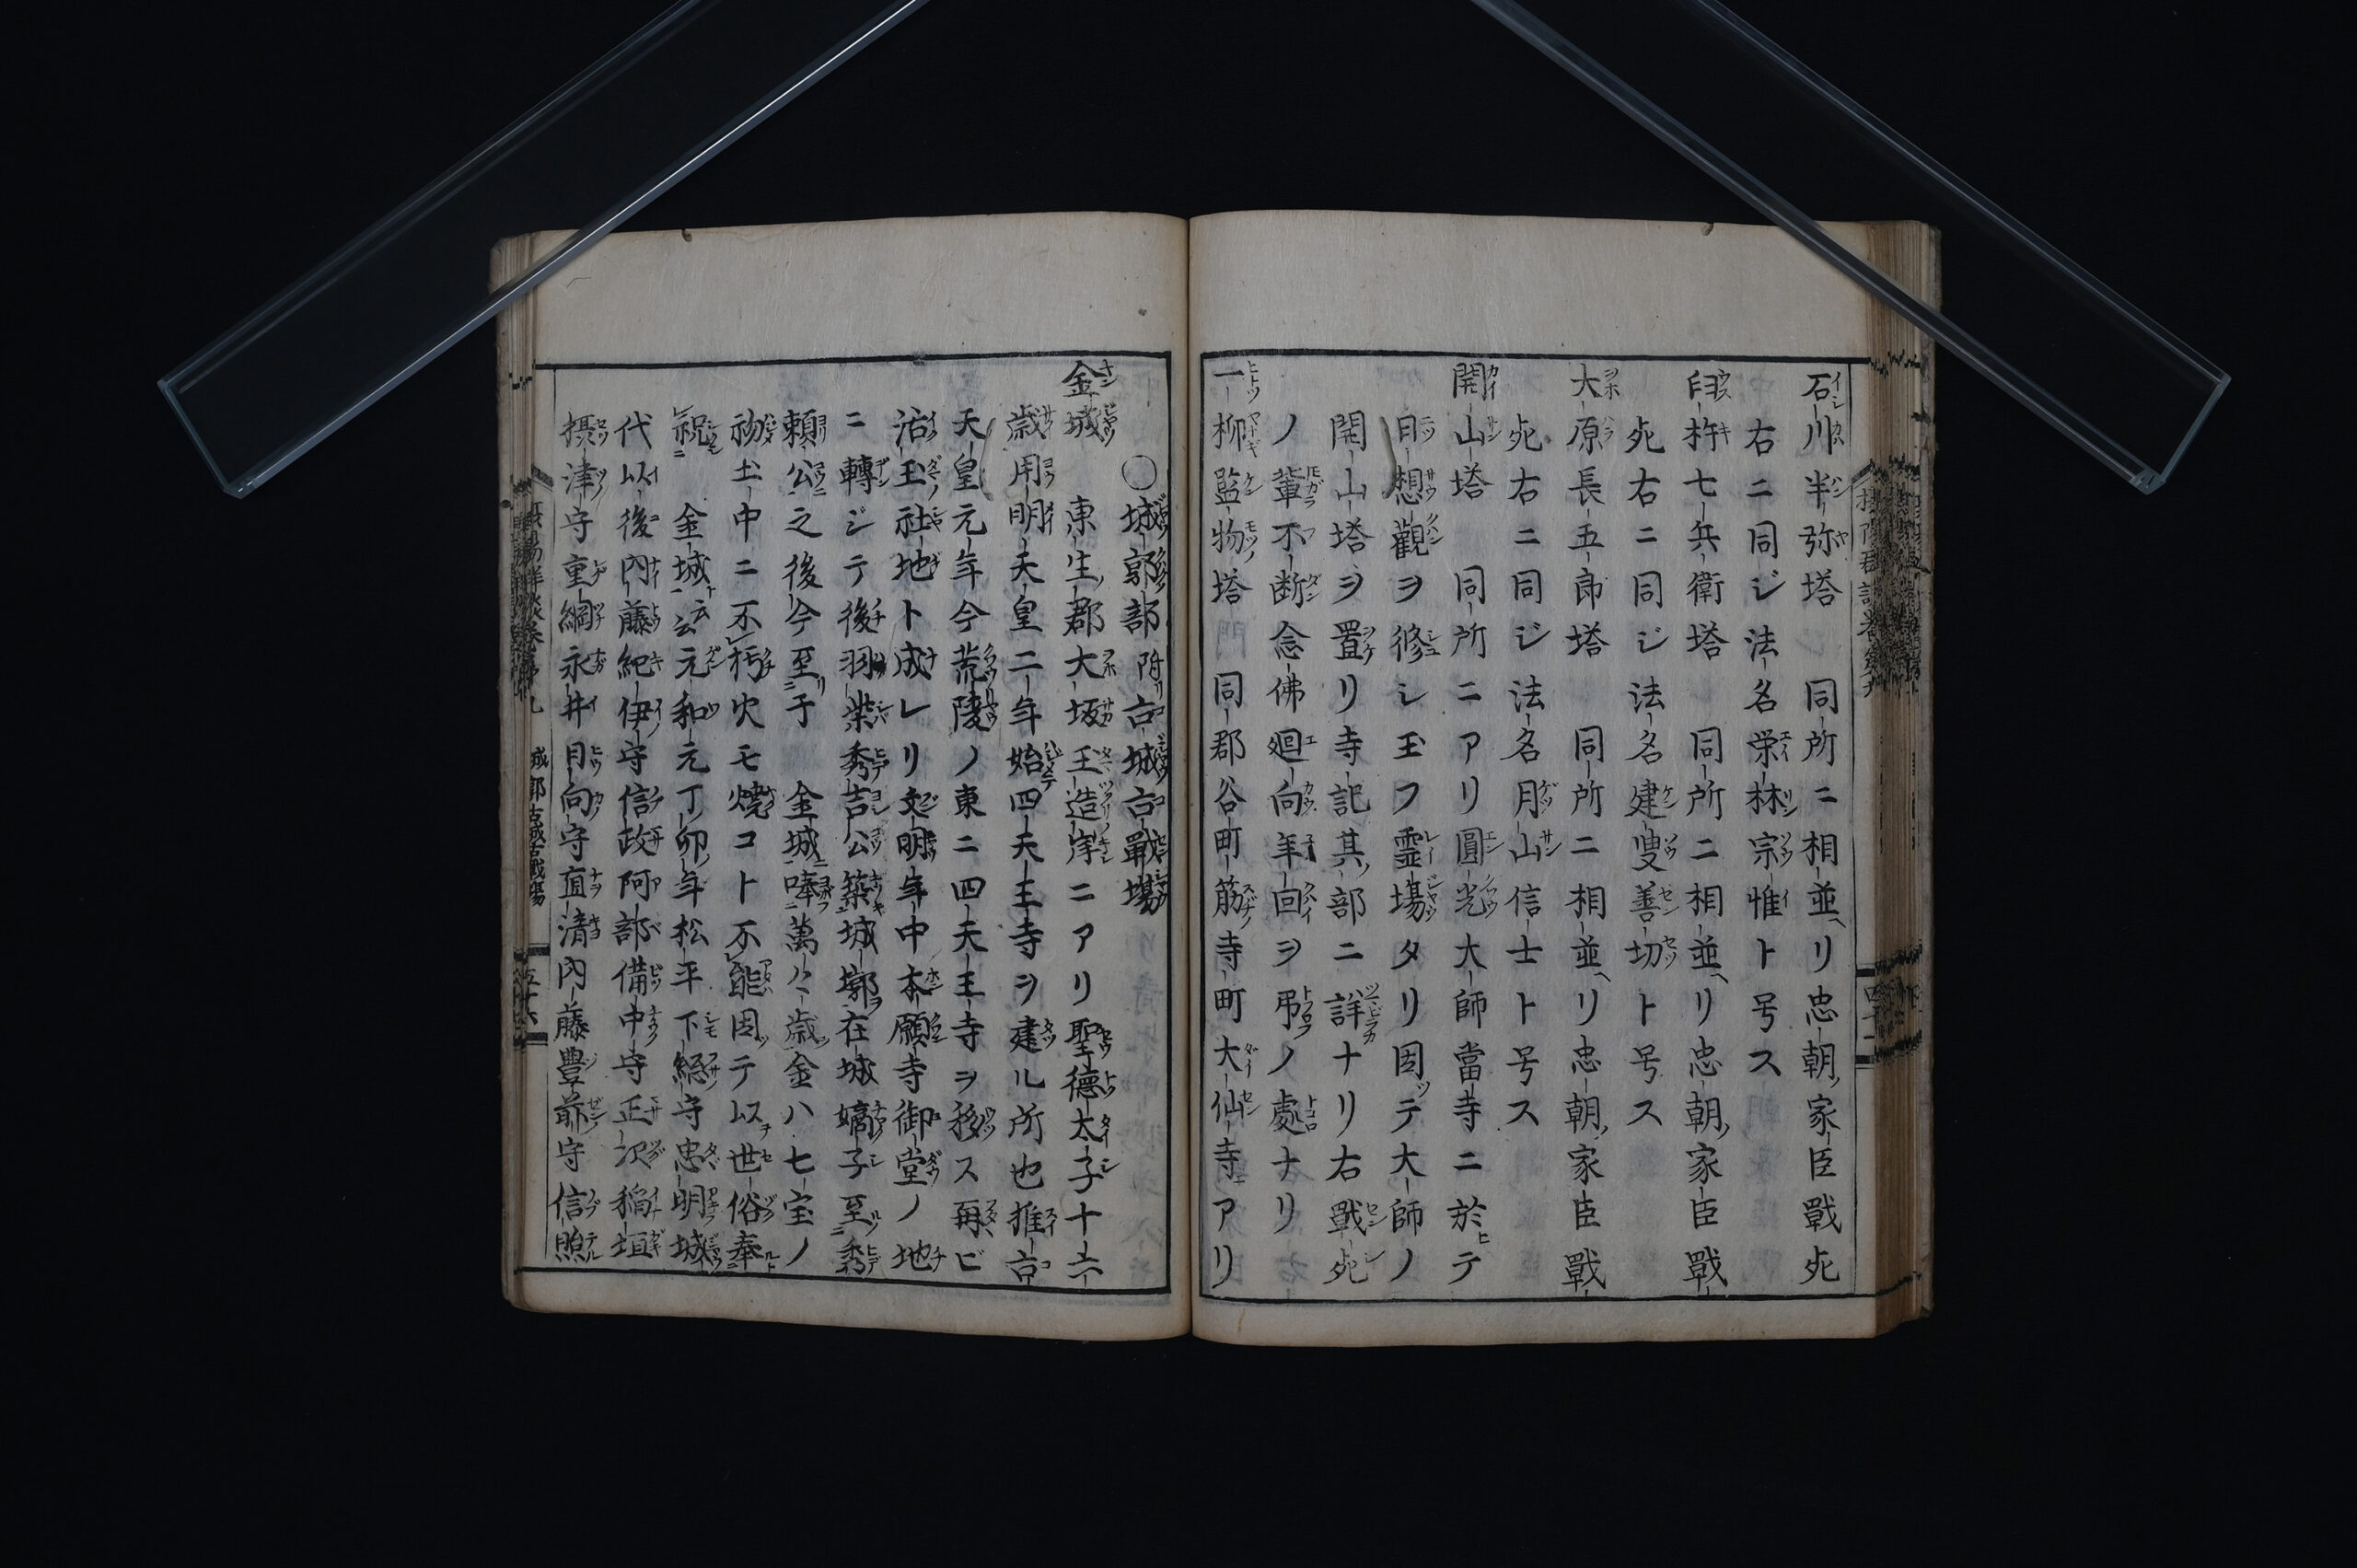 石川半弥塔　同所ニ相並リ忠朝家臣戰死
右ニ同ジ法名栄林宗惟ト号ス
臼杵七兵衛塔　同所ニ相並リ忠朝家臣戰
死右ニ同ジ法名建叟善切ト号ス
大原長五郎塔　同所ニ相並リ忠朝家臣戰
死右ニ同ジ法名月山信士ト号ス
開山塔　同所ニアリ圓光大師當寺ニ於テ
日想觀ヲ修シ玉フ霊場タリ因テ大師ノ
開山塔ヲ置リ寺記其部ニ詳ナリ右戰死
ノ輩不断念佛廻向年回ヲ弔ノ處ナリ
一柳監物塔　同郡谷町筋寺町大仙寺アリ
○城郭部附古城古戰場
金城　東生郡大坂玉造岸ニアリ聖徳太子十六
歳用明天皇二年始四天王寺ヲ建ル所也推古
天皇元年今荒陵ノ東ニ四天王寺ヲ移ス再ビ
活玉社地ト成レリ文明年中本願寺御堂ノ地
ニ轉ジテ後羽柴秀吉公築城郭在城嫡子至秀
頼公之後今至于　金城唪萬々歳金ハ七宝ノ
初土中ニ不朽火モ燒コト不能因テ以世俗奉
祝　金城云元和元丁卯年松平下総守忠明城
代以後内藤紀伊守信政阿部備中守正次稲垣
摂津守重綱永井日向守直清内藤豊前守信照